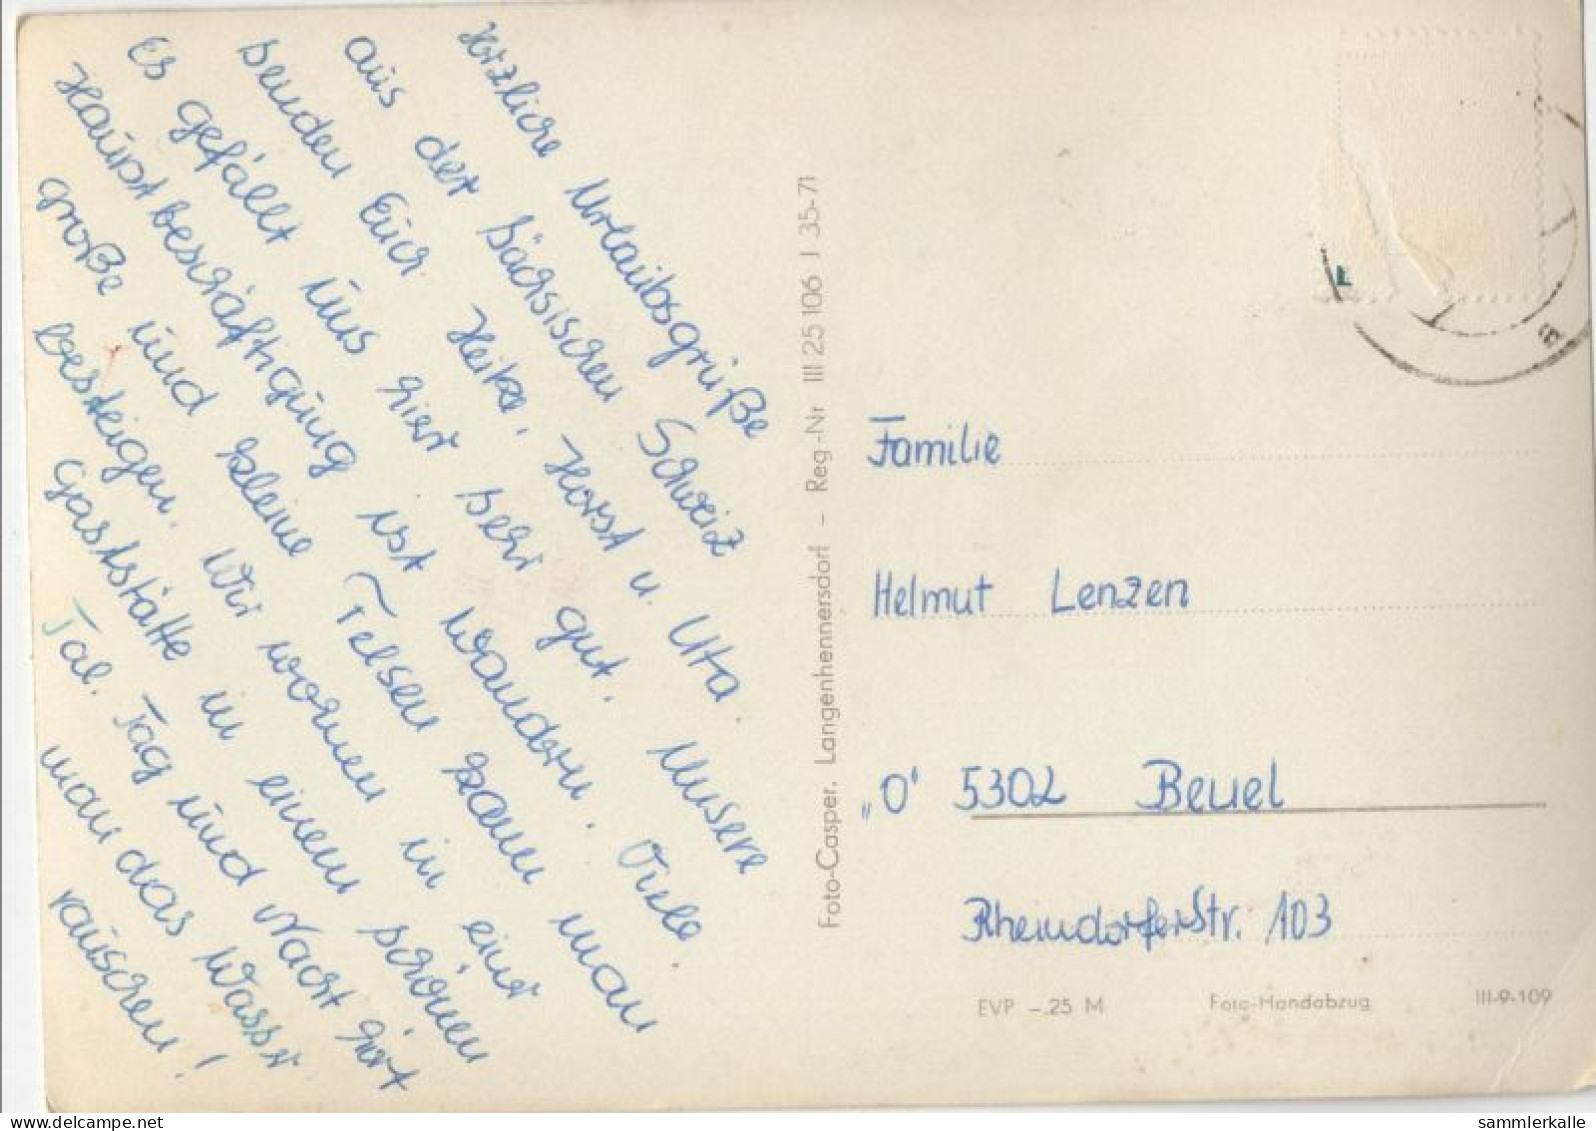 Herzliche Urlaubsgrüße
aus der Sächsischen Schweiz
senden Euch Heike, Horst u. Uta.
Es gefällt uns hier sehr gut. Unsere
Hauptbeschäftigung ist Wandern. Viele
große und kleine Felsen kann man
besteigen. Wir wohnen in einer
Gaststätte in einem schönen
Tal. Tag und Nacht hört
man das Wasser
rauschen!
Foto-Casper, Langenhennersdorf – Reg.-Nr III 25 106 J 35-71
Familie
Helmut Lenzen
„O" 5302 Beuel
Rheindorferstr. 103
EVP –.25 M Foto-Handabzug III-9-109
www.delcampe.net sammlerkalle